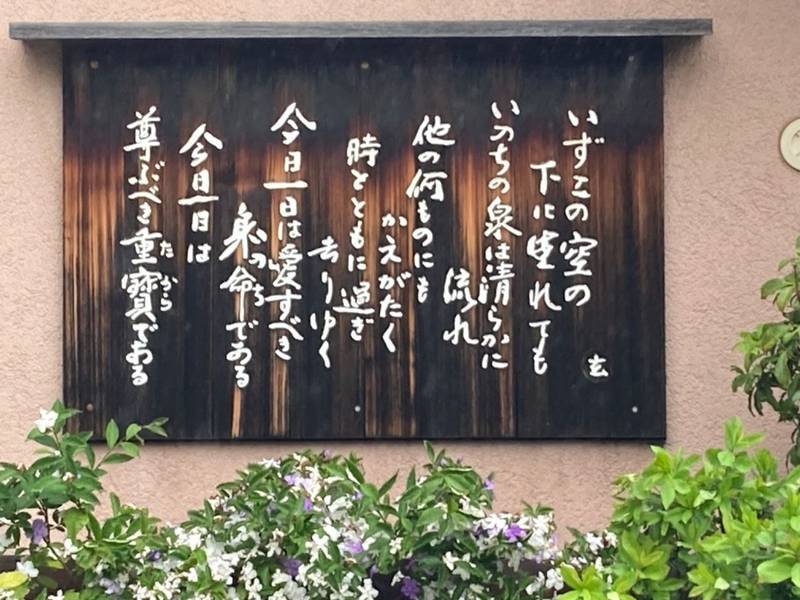 玄
いずこの空の
下に生れても
いのちの泉は清らかに
流れ
他の何ものにも
かえがたく
時とともに過ぎ
去りゆく
今日一日は愛すべき
いのち
身命である
今日一日は
たから
尊ぶべき重寶である